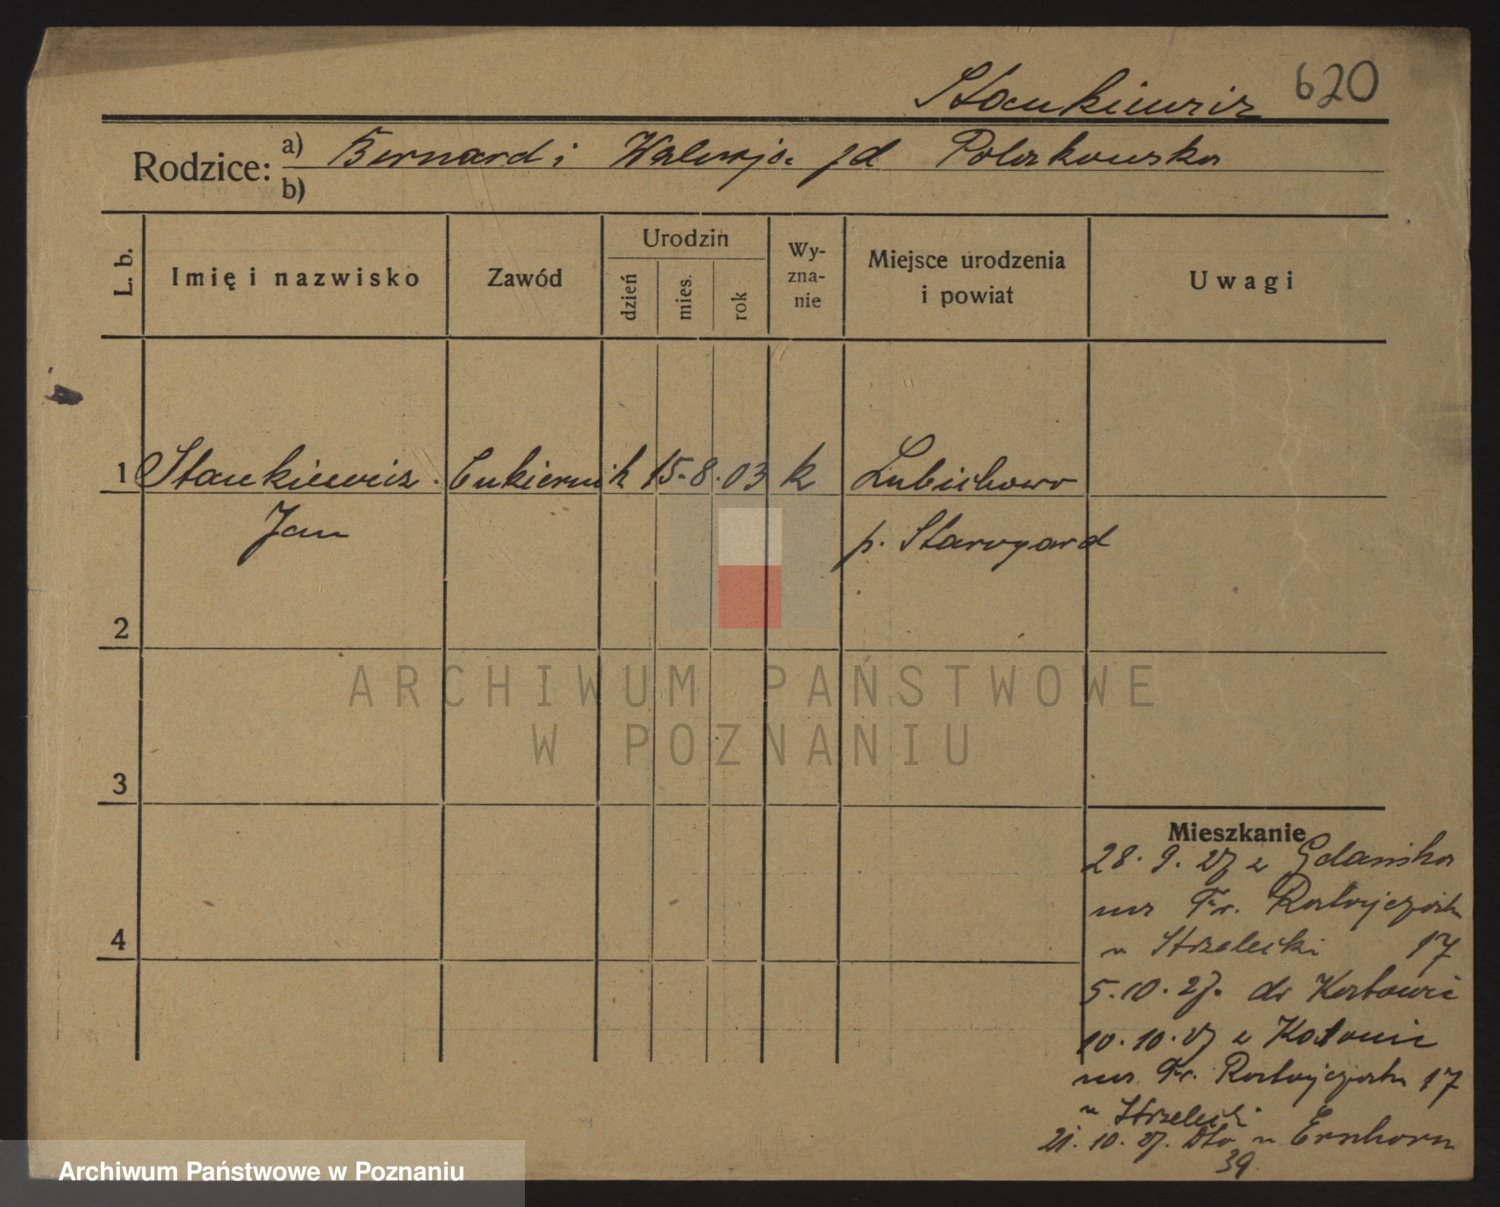 Stankiewicz 620
Rodzice: a) Bernard i Walerja zd Polakowska
b)
L. b. Imię i nazwisko Zawód Urodzin dzień mies. rok Wyznanie Miejsce urodzenia i powiat Uwagi
1 Stankiewicz Cukiernik 15. 8. 03 k Lubichowo
Jan p. Starogard
2
3
4
Mieszkanie
28. 9. 27 z Gdańska
na Fr. Ratajczaka
u Strzelecki 17
5. 10. 27. do Katowic
10. 10. 27 z Katowic
na Fr. Ratajczaka 17
u Strzelecki
21. 10. 27. Dto. u
39
ARCHIWUM PAŃSTWOWE
W POZNANIU
Archiwum Państwowe w Poznaniu